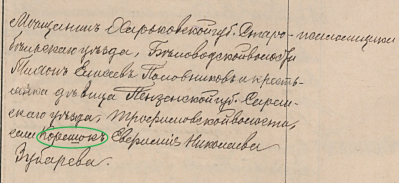 Мѣщанинъ Харьковской губ. Старо-
бѣльскаго уѣзда, Бѣловодской волости
Миронъ Елисеевъ Половниковъ и кресть-
янка дѣвица Пензенской губ. Саран-
скаго уѣзда, Трофимовской волости,
села Корешокъ Евфросинія Николаева
Зубарева.